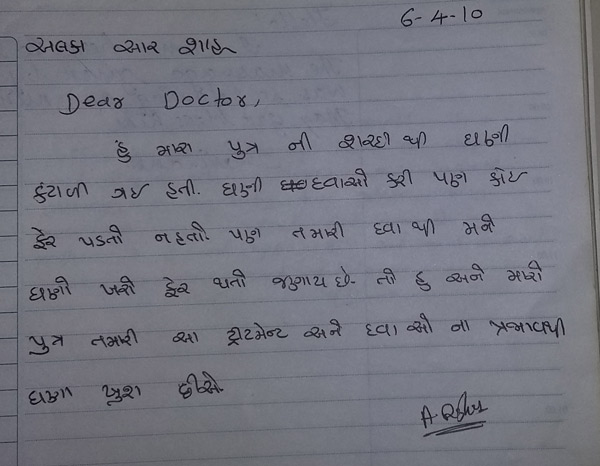 6-4-10
અલકા આર શાહ
Dear Doctor,
હું મારા પુત્ર ની શરદી થી ઘણી
કંટાળી ગઇ હતી. ઘણી દવાઓ કરી પણ કોઇ
ફેર પડતો નહતો. પણ તમારી દવા થી મને
ઘણો ખરો ફેર થતો જણાય છે. તો હુ અને મારો
પુત્ર તમારી આ ટ્રીટમેન્ટ અને દવાઓ ના પ્રભાવથી
ઘણા ખુશ છીએ.